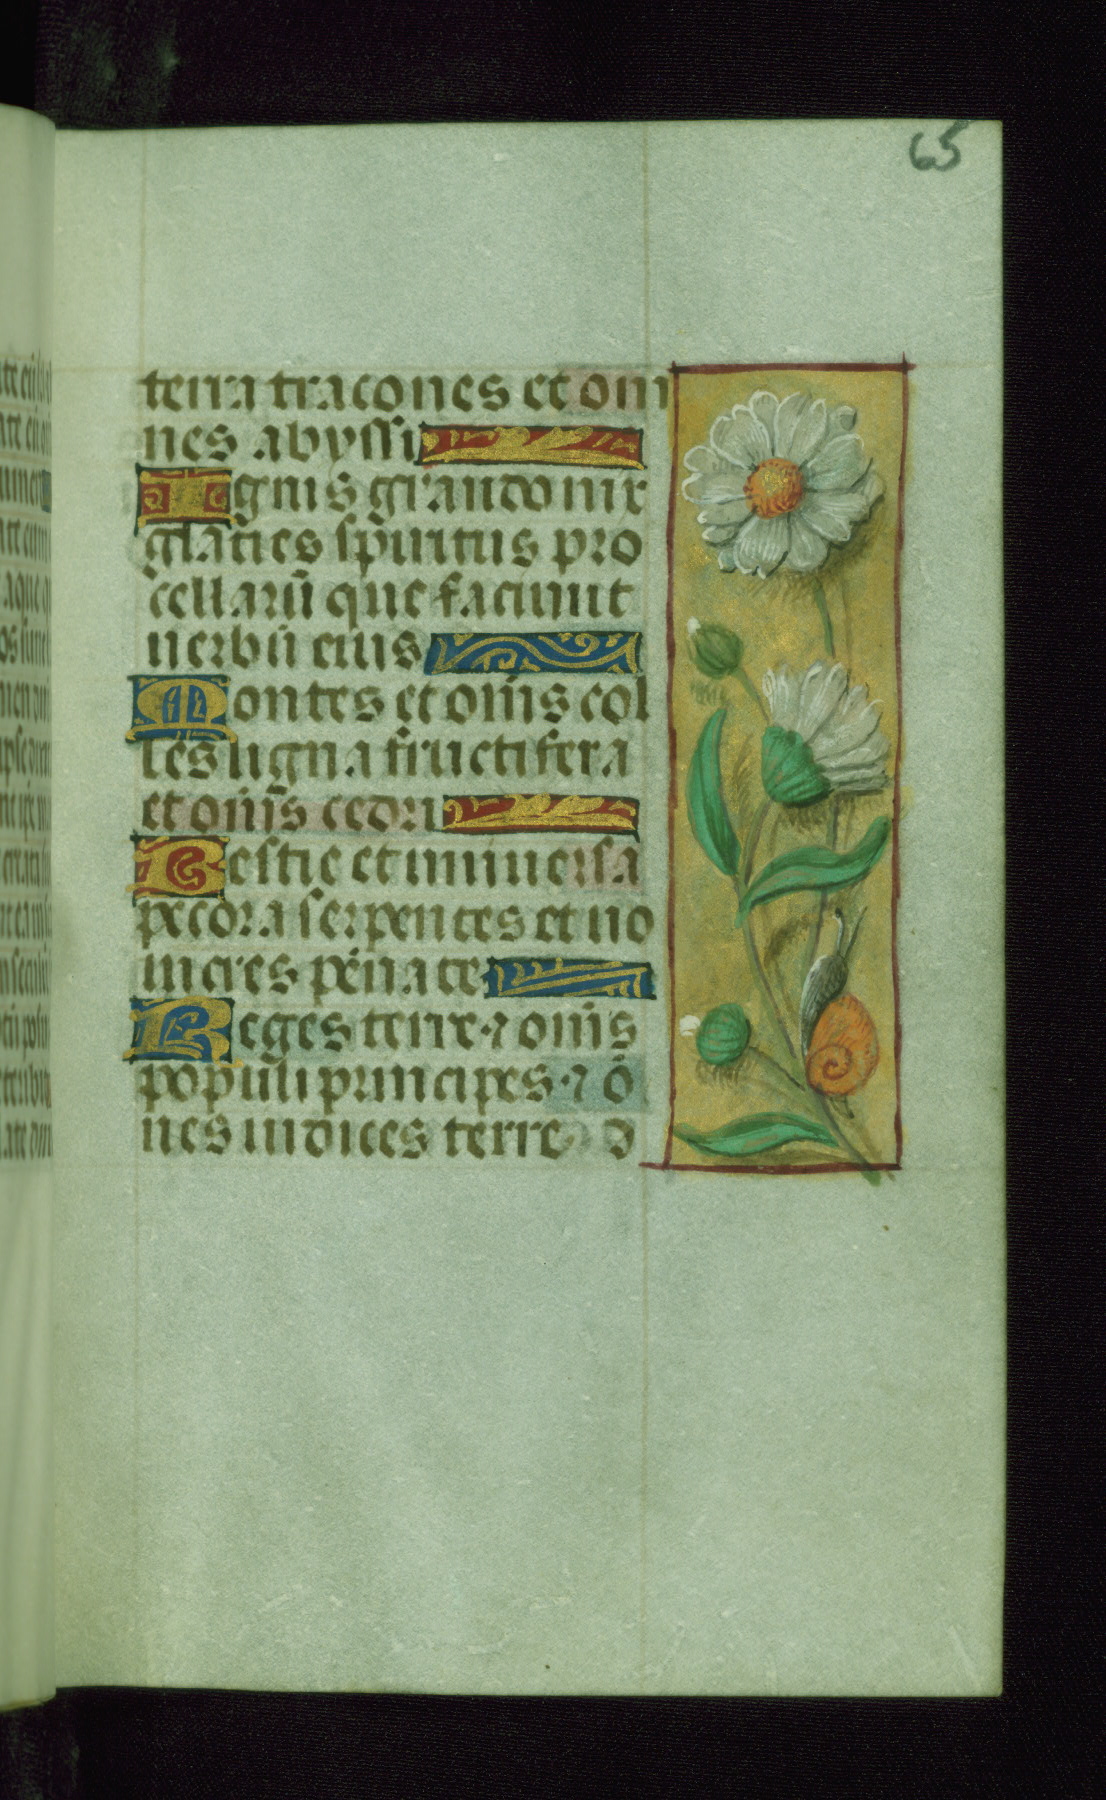 65
terra tracones et om
nes abyssi
Ignis grando nix
glacies spiritus pro
cellarū que faciunt
uerbū eius
Montes et om̄s col
les ligna fructifera
et om̄s cedri
Bestie et uniuersa
pecora serpentes et uo
lucres pēnate
Reges terre ⁊ om̄s
populi principes ⁊ ō
nes iudices terre